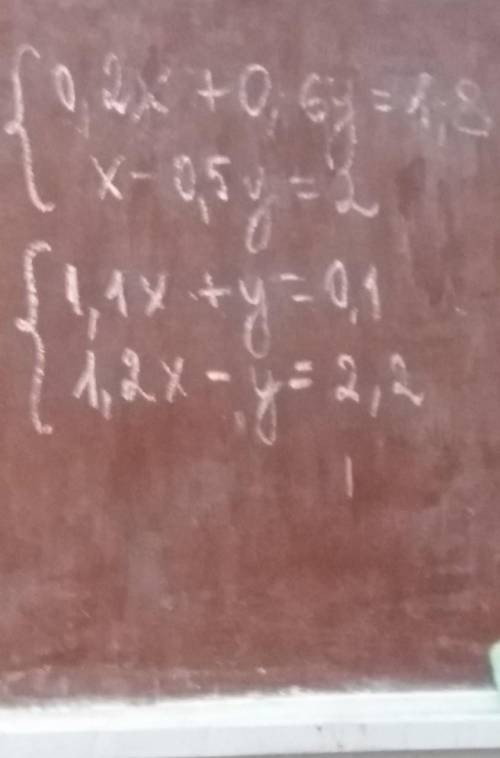 0,2x + 0,6y = 1,8
x - 0,5y = 2
1,1x + y = 0,1
1,2x - y = 2,2